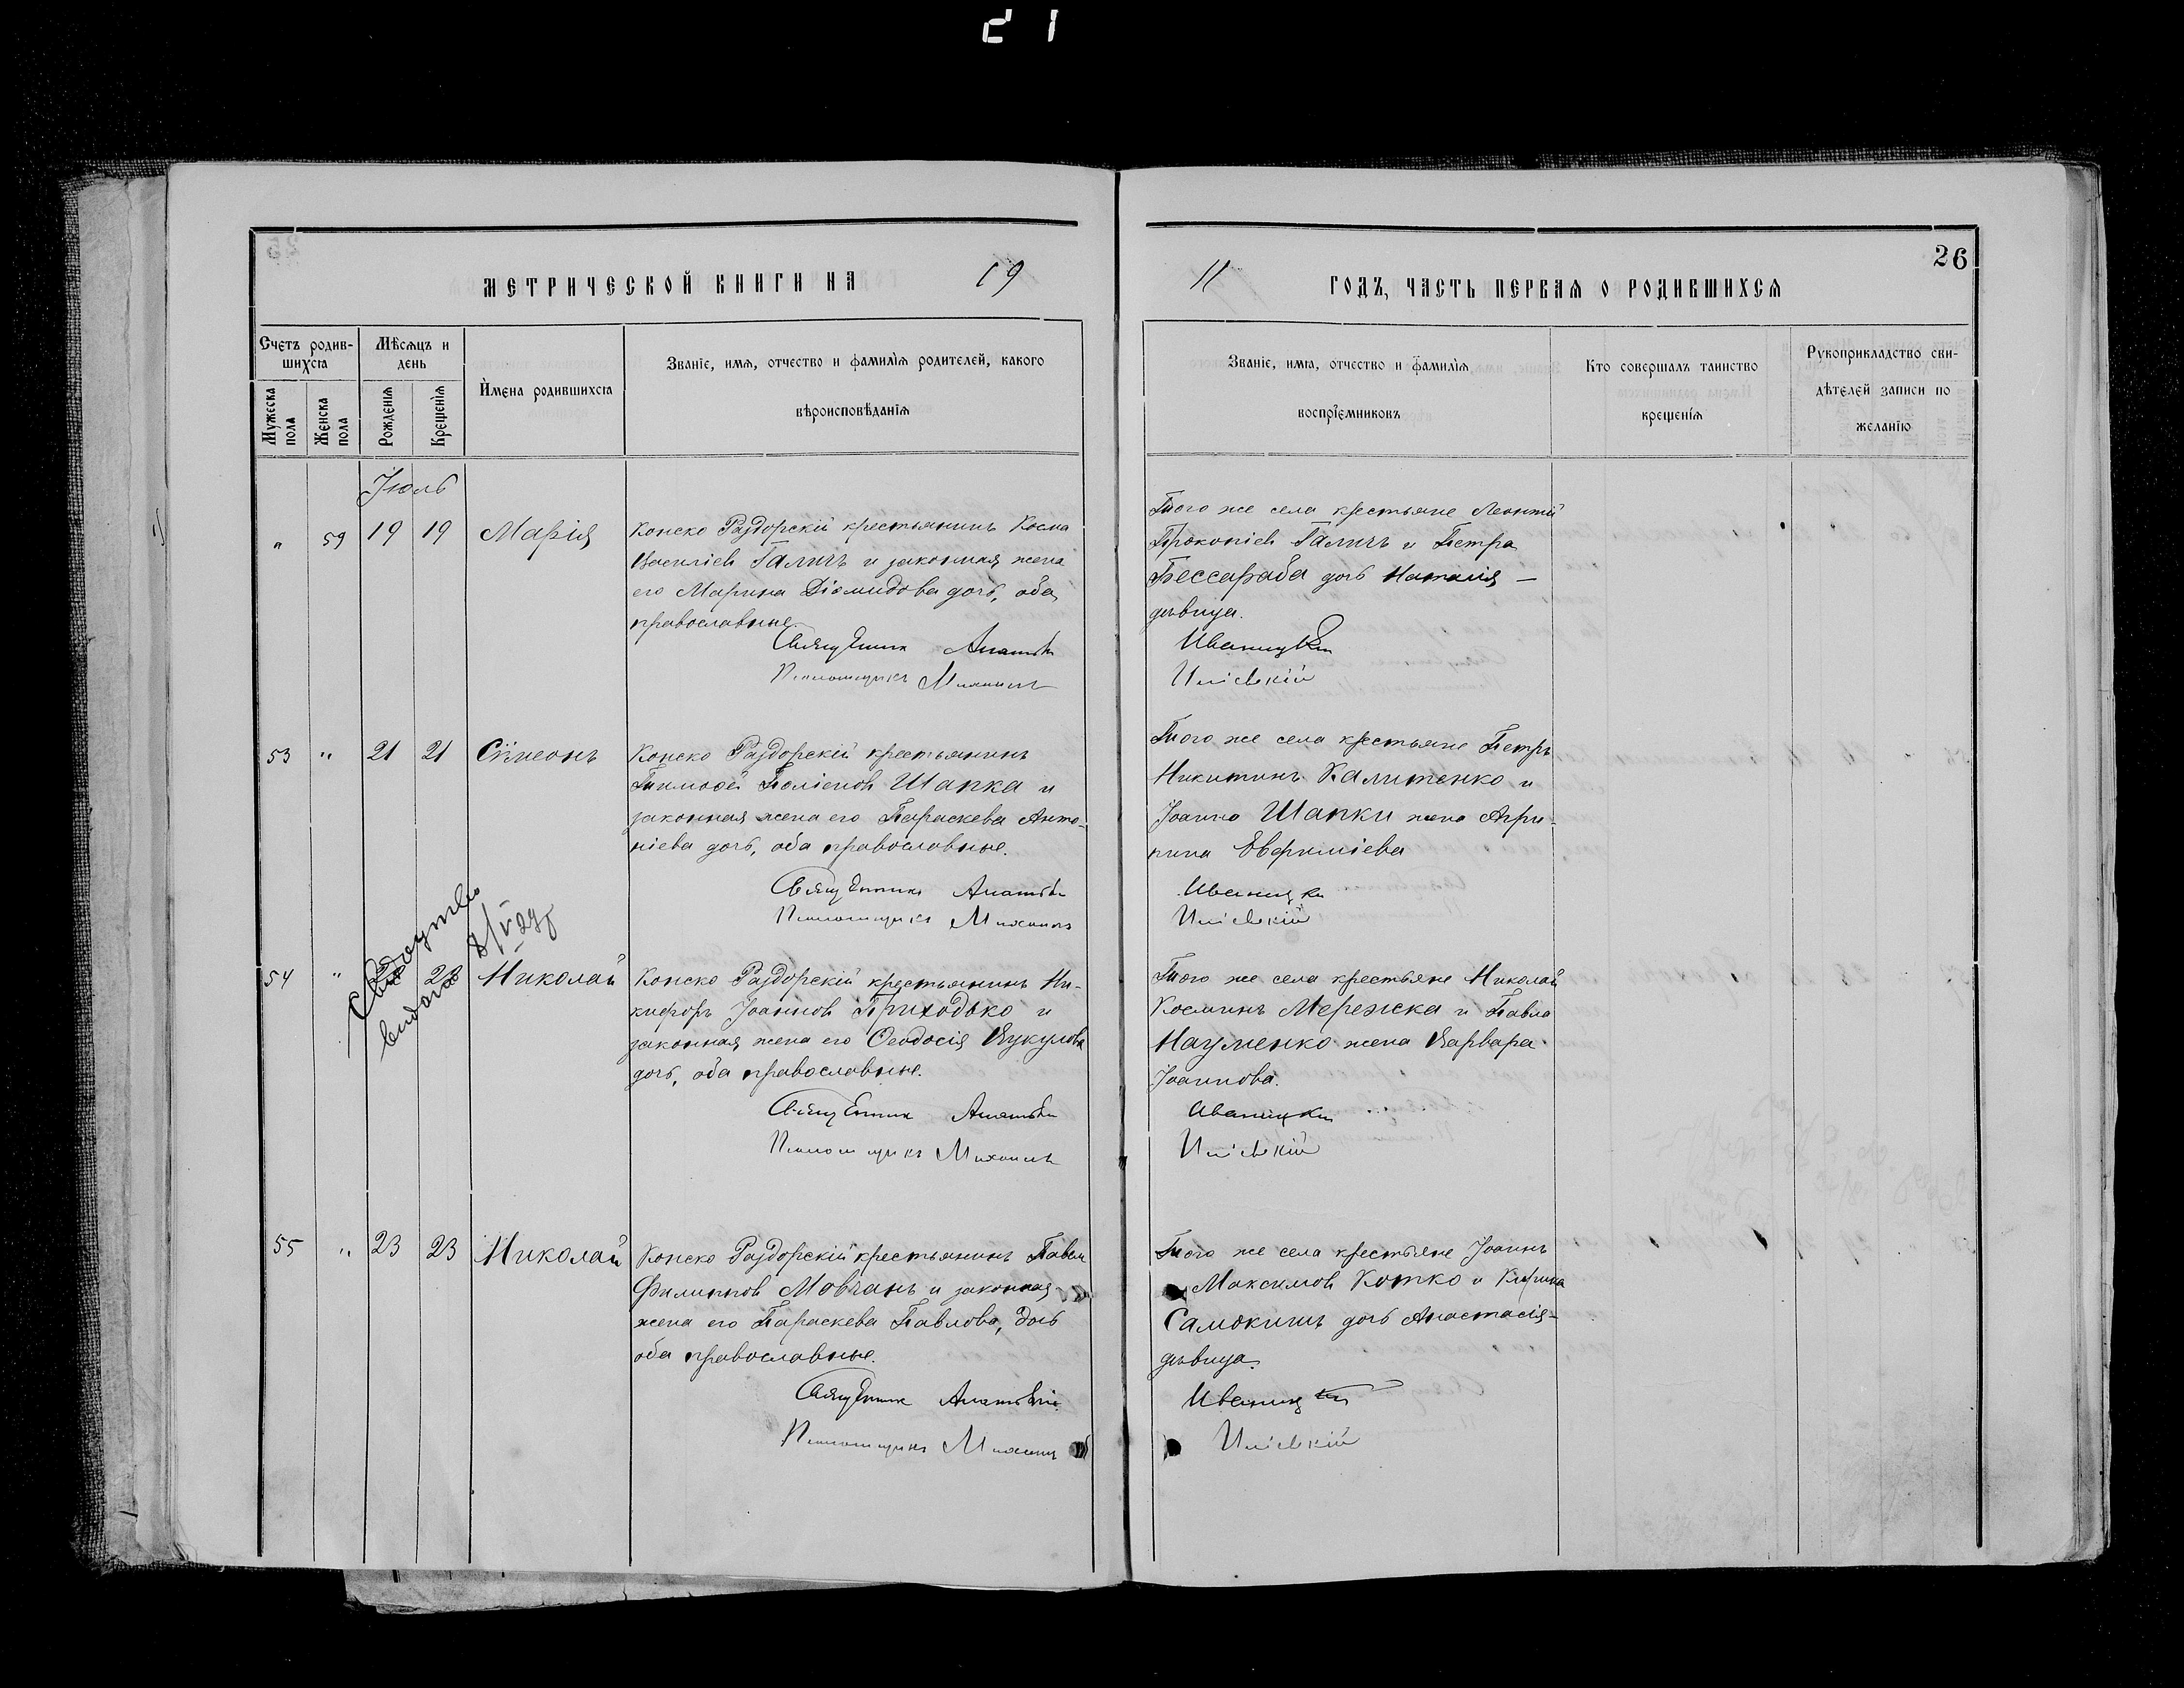 21
26
МЕТРИЧЕСКОЙ КНИГИ НА 19
11 ГОДЪ, ЧАСТЬ ПЕРВАЯ О РОДИВШИХСЯ
Счетъ родив-
шихся
Мѣсяцъ и
день
Мужеска
пола
Женска
пола
Рожденія
Крещенія
Имена родившихся
Званіе, имя, отчество и фамилія родителей, какого
вѣроисповѣданія
Званіе, имя, отчество и фамилія
воспріемниковъ
Кто совершалъ таинство
крещенія
Рукоприкладство сви-
дѣтелей записи по
желанію
Іюль
" 59 19 19 Марія
Конско Раздорскій крестьянинъ Косма
Василіев Галичъ и законная жена
его Марина Діомидова дочь, оба
православные.
Священник
Псаломщикъ Михаилъ
Того же села крестьяне Леонтій
Прокопіев Галичъ и Петра
Бессараба дочь Наталія —
дѣвица.
Иваницкій
53 " 21 21 Сѵмеонъ
Конско Раздорскій крестьянинъ
Тимоѳей Шапка и
законная жена его Параскева Анто-
ніева дочь, оба православные.
Священник
Псаломщикъ Михаилъ
Того же села крестьяне Петръ
Никитинъ Калитенко и
Іоанна Шапки жена Агри-
пина Евфиміева
Иваницкій
54 " 23 Николай
Конско Раздорскій крестьянинъ Ни-
кифоръ Іоаннов Приходько и
законная жена его Ѳеодосія Вукулова
дочь, оба православные.
Священник
Псаломщикъ Михаилъ
Того же села крестьяне Николай
Косминъ Мережска и Павла
Науменко жена Варвара
Іоаннова.
Иваницкій
55 " 23 23 Николай
Конско Раздорскій крестьянинъ Павел
Филиппов Мовчанъ и законная
жена его Параскева Павлова, дочь
оба православные.
Священник
Псаломщикъ Михаилъ
Того же села крестьяне Іоаннъ
Максимов Котко и
Самокишъ дочь Анастасія-
дѣвица.
Иваницкій